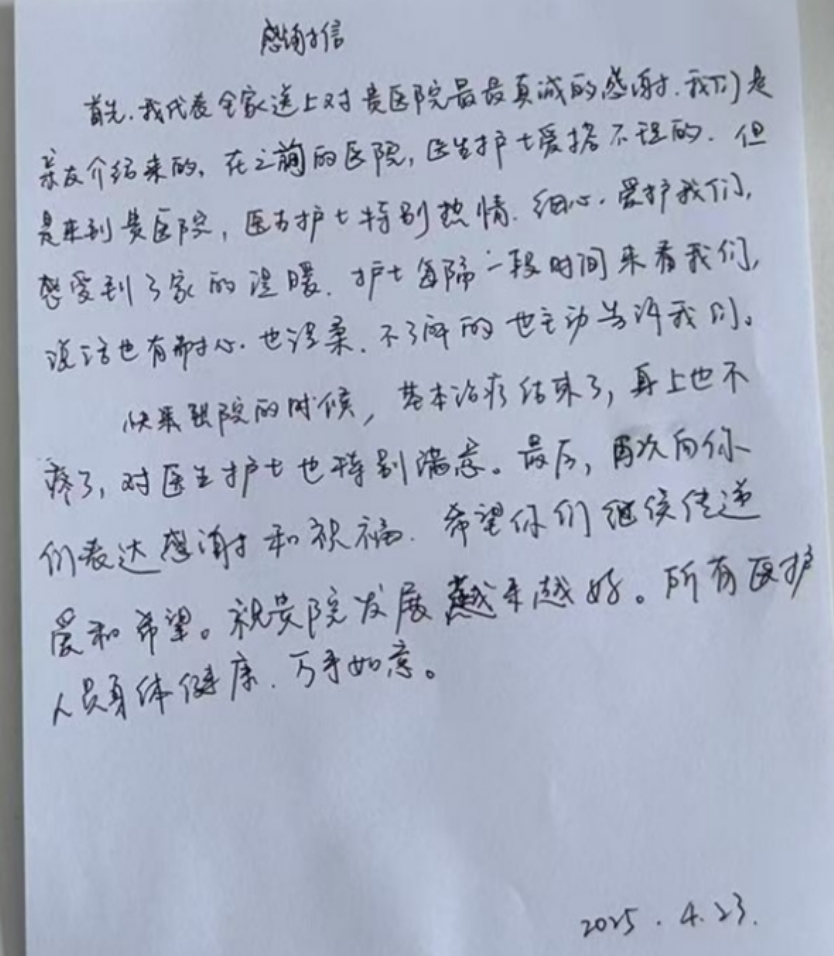 感谢信
首先,我代表全家送上对贵医院最最真诚的感谢,我们是
亲友介绍来的,在之前的医院,医生护士爱搭不理的.但
是来到贵医院,医生护士特别热情.细心.爱护我们,
感受到了家的温暖.护士每隔一段时间来看我们,
说话也有耐心.也温柔.不了解的也主动告诉我们。
快来到院的时候,基本治疗结束了,身上也不
疼了,对医生护士也特别满意。最后,再次向你
们表达感谢和祝福.希望你们继续传递
爱和希望。祝贵院发展越来越好。所有医护
人员身体健康.万事如意。
2025.4.23.